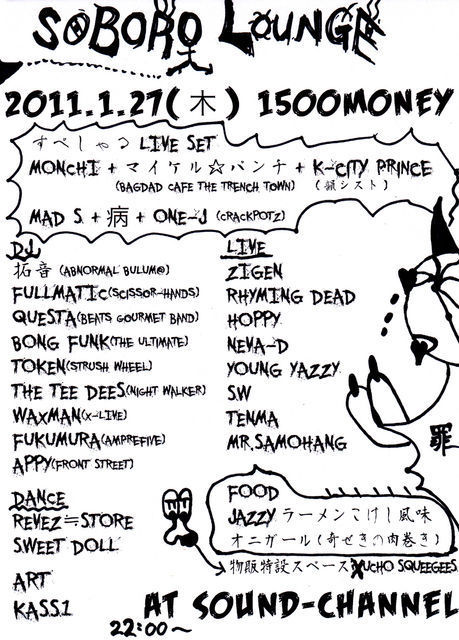 SOBORO LOUNGE
2011.1.27(木) 1500MONEY
すぺしゃる LIVE SET
MONCHI + マイケル☆パンチ + K-CITY PRINCE
(BAGDAD CAFE THE TRENCH TOWN) (韻シスト)
MAD S. + 病 + ONE-J (CRACKPOTZ)
DJ
拓音 (ABNORMAL BULUM@)
FULLMATIC(SCISSOR-HANDS)
QUESTA(BEATS GOURMET BAND)
BONG FUNK(THE ULTIMATE)
TOKEN(STRUSH WHEEL)
THE TEE DEES(NIGHT WALKER)
WAXMAN(X-LIVE)
FUKUMURA(AMPREFIVE)
APPY(FRONT STREET)
LIVE
ZIGEN
RHYMING DEAD
HOPPY
NEVA-D
YOUNG YAZZY
S.W
TENMA
MR.SAMOHANG
罪
DANCE
REVEZ≒STORE
SWEET DOLL
ART
KASS1
FOOD
JAZZY ラーメンこけし風味
オニガール(奇せきの肉巻き)
物販特設スペース YUCHO SQUEEGEES
AT SOUND-CHANNEL
22:00~